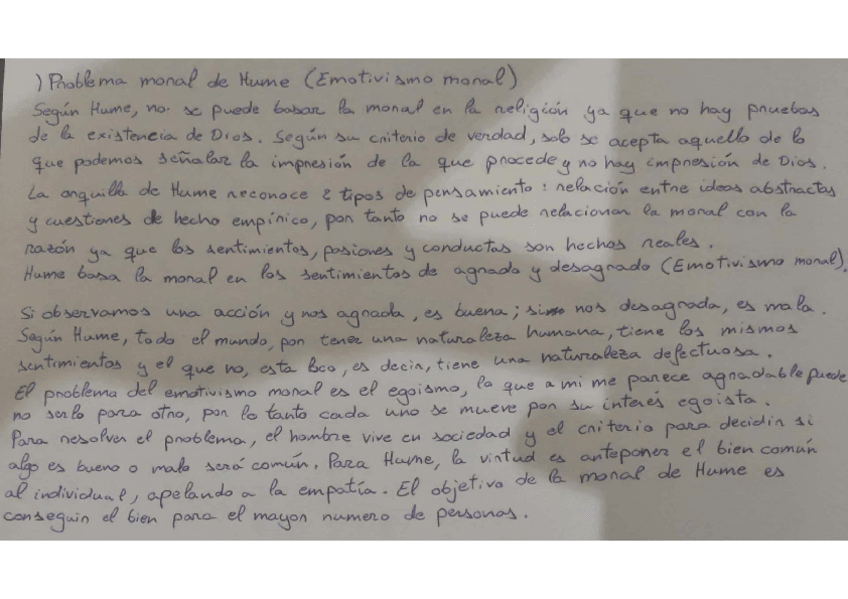 ) Problema moral de Hume (Emotivismo moral)
Según Hume, no se puede basar la moral en la religión ya que no hay pruebas
de la existencia de Dios. Según su criterio de verdad, solo se acepta aquello de lo
que podemos señalar la impresión de la que procede y no hay impresión de Dios.
La orquilla de Hume reconoce 2 tipos de pensamiento: relación entre ideas abstractas
y cuestiones de hecho empírico, por tanto no se puede relacionar la moral con la
razón ya que los sentimientos, pasiones y conductas son hechos reales.
Hume basa la moral en los sentimientos de agrado y desagrado (Emotivismo moral).
Si observamos una acción y nos agrada, es buena; si nos desagrada, es mala.
Según Hume, todo el mundo, por tener una naturaleza humana, tiene los mismos
sentimientos y el que no, esta loco, es decir, tiene una naturaleza defectuosa.
El problema del emotivismo moral es el egoismo, lo que a mi me parece agradable puede
no serlo para otro, por lo tanto cada uno se mueve por su interés egoista.
Para resolver el problema, el hombre vive en sociedad y el criterio para decidir si
algo es bueno o malo será común. Para Hume, la virtud es anteponer el bien común
al individual, apelando a la empatía. El objetivo de la moral de Hume es
conseguir el bien para el mayor numero de personas.